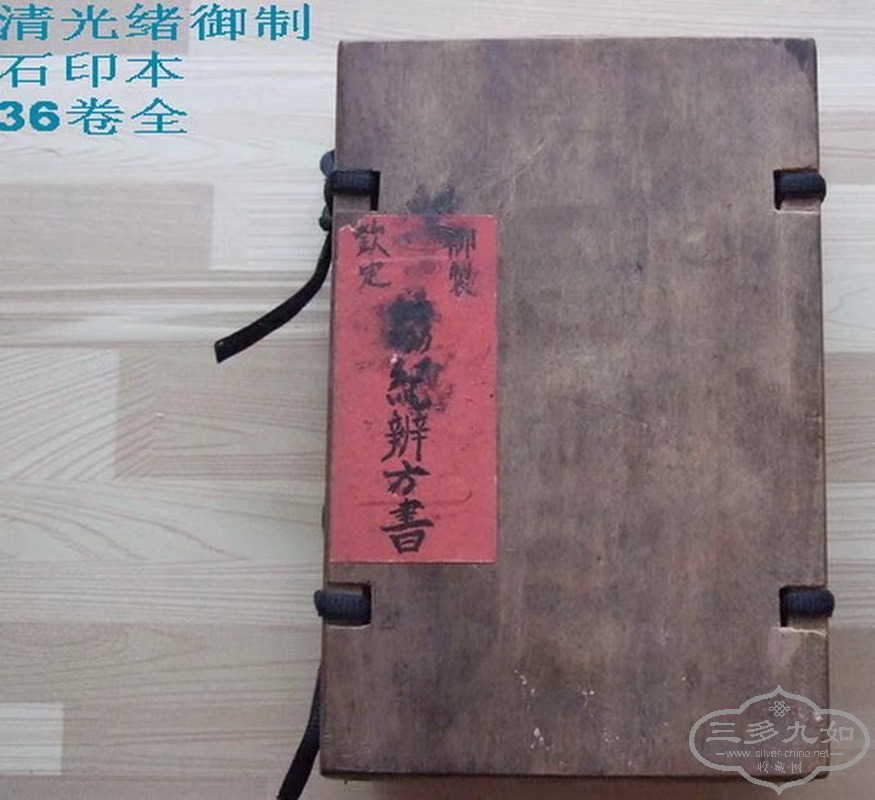 清光绪御制
石印本
36卷全
御製
欽定
紀辨方書
三多九如
www.silver-china.net
收藏网